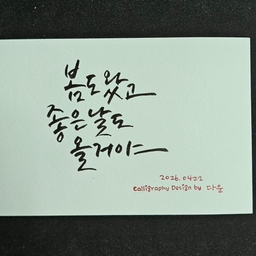 봄도 왔고
좋은 날도
올거야
2026. 04.22
Calligraphy Design by 다운